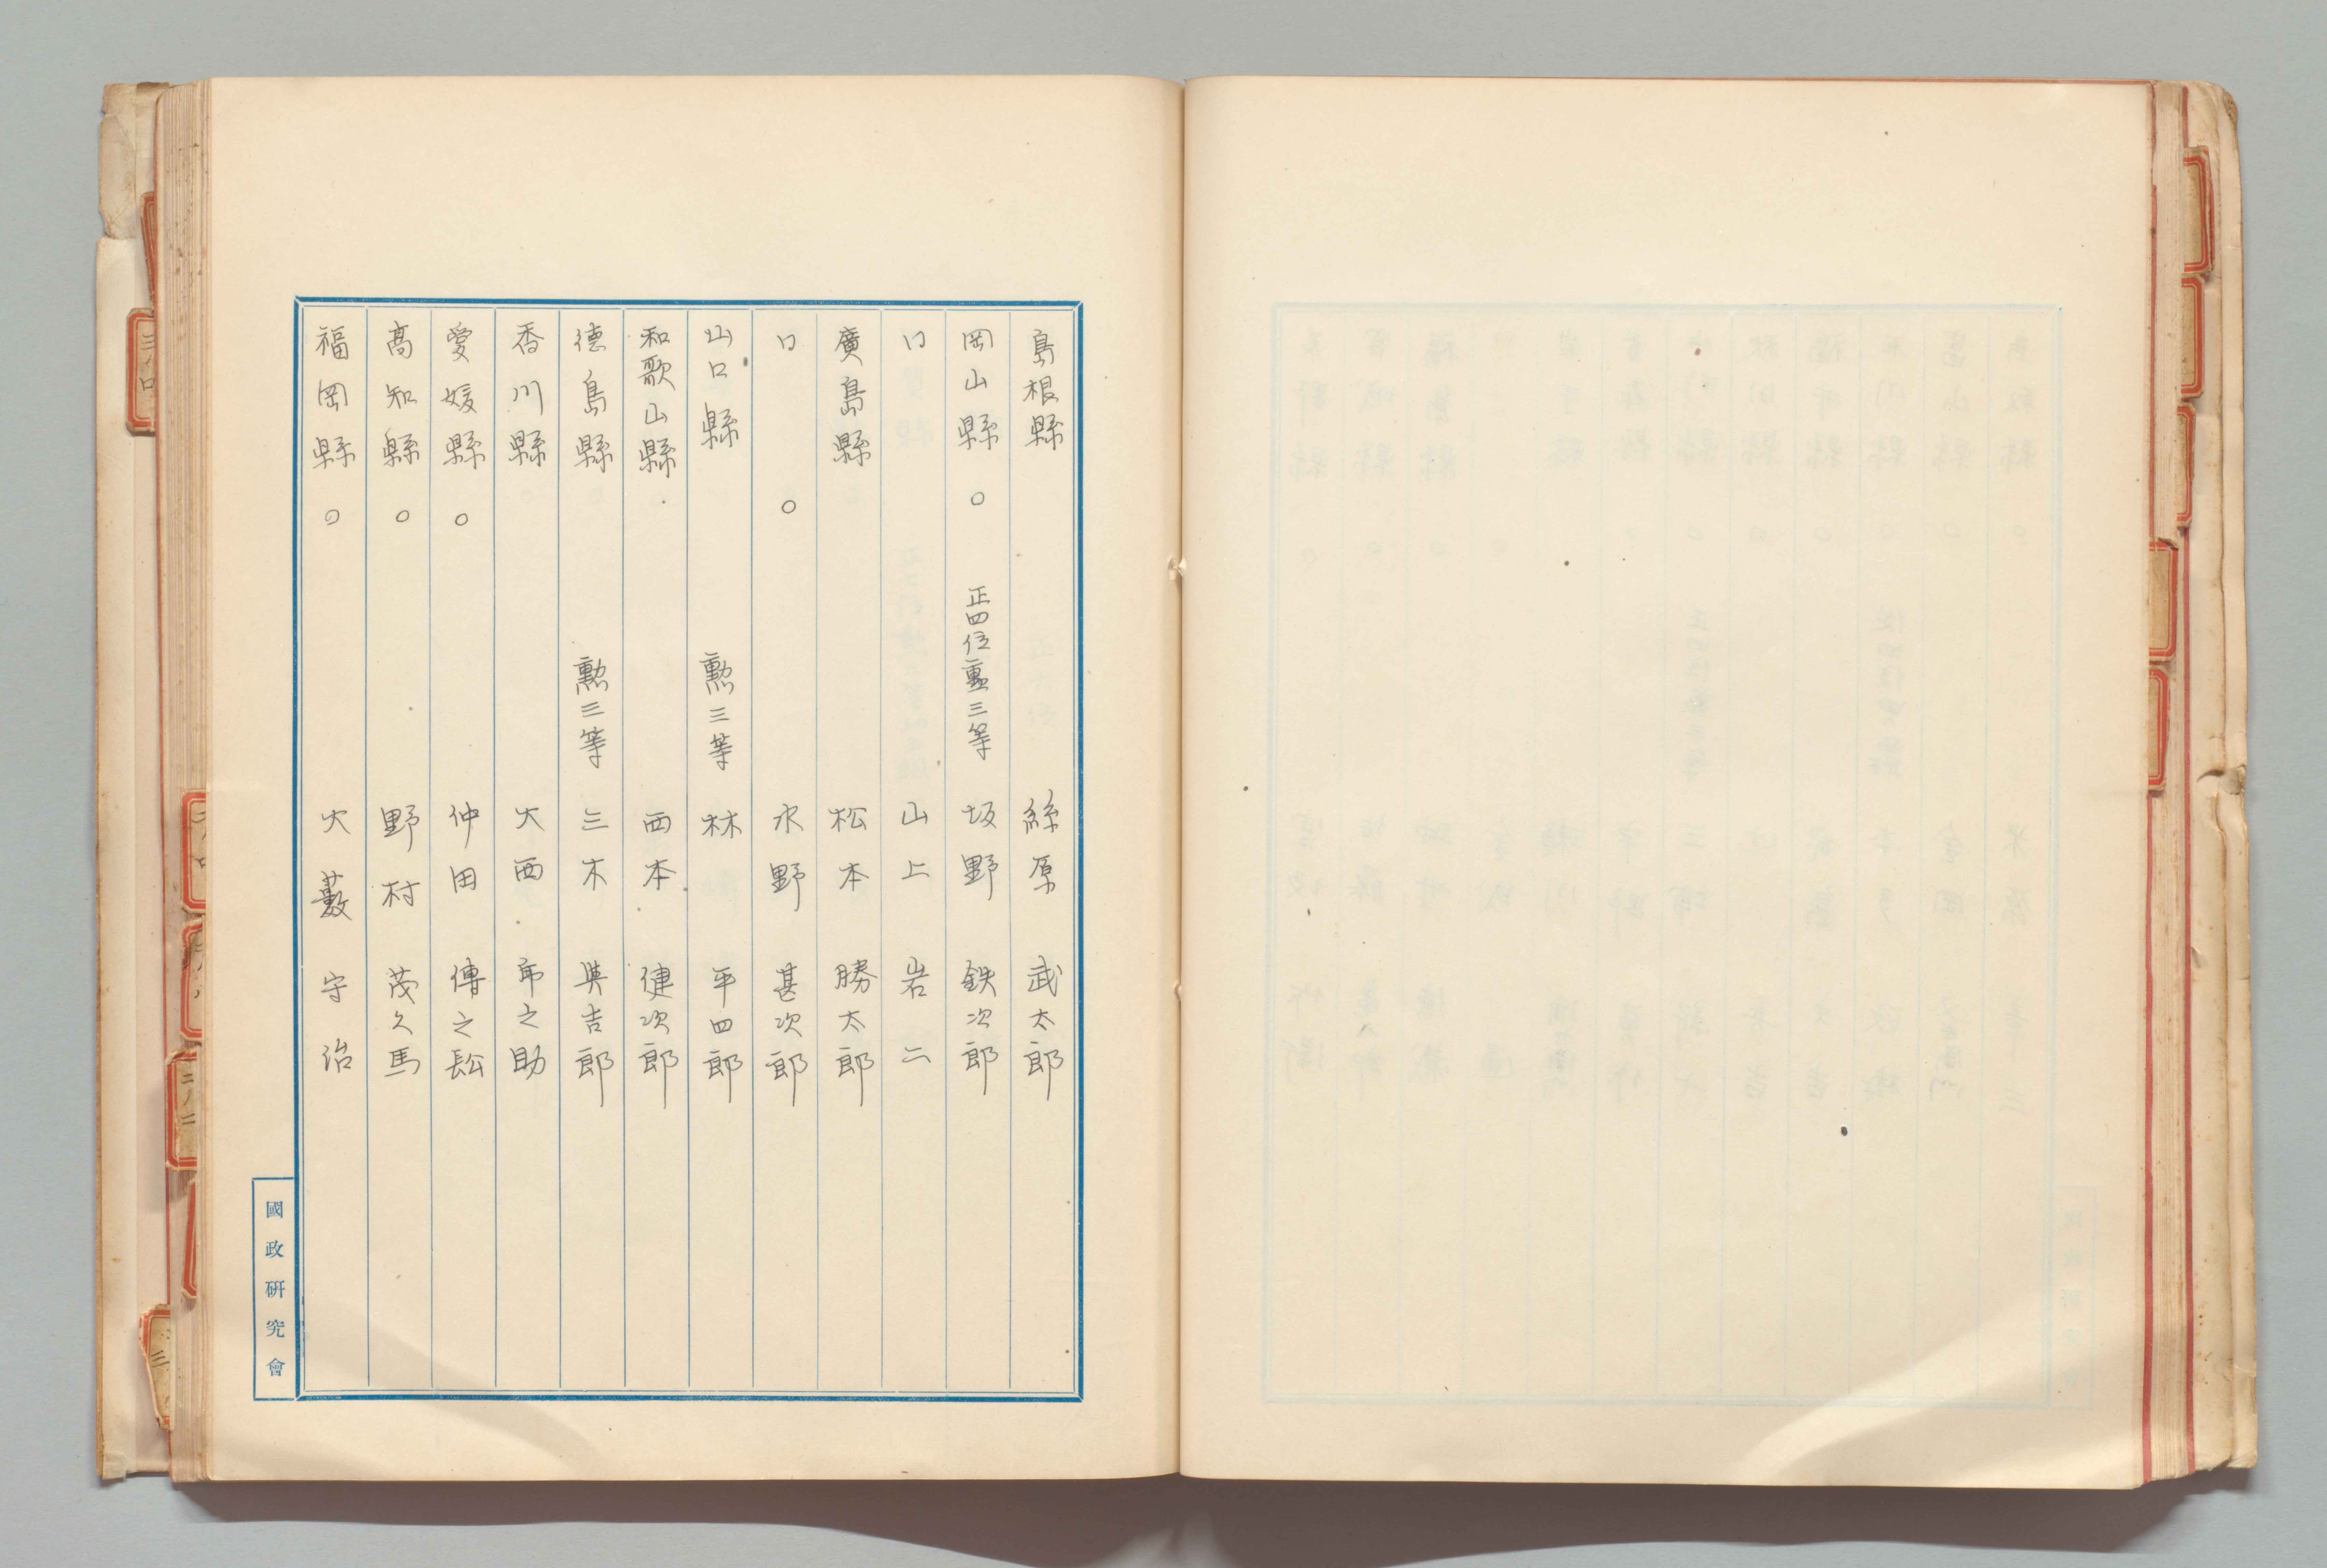 島根縣 絲原 武太郎
岡山縣 〇 正四位勲三等 坂野 鉄次郎
〃 山上 岩二
廣島縣 松本 勝太郎
〃 〇 水野 甚次郎
山口縣 勲三等 林 平四郎
和歌山縣 西本 健次郎
德島縣 勲三等 三木 與吉郎
香川縣 大西 市之助
愛媛縣 〇 仲田 傳之𪀚
高知縣 〇 野村 茂久馬
福岡縣 〇 大藪 守治
國政研究會